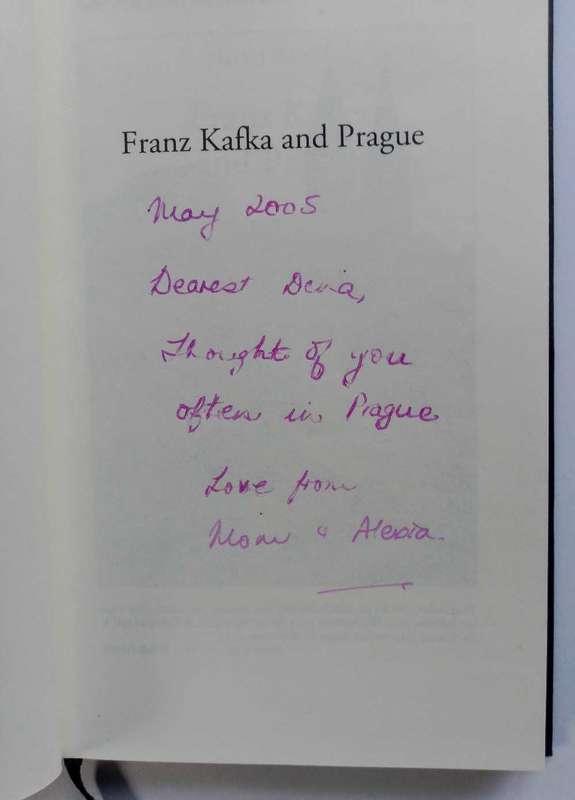 Franz Kafka and Prague
May 2005
Dearest
Thought of you
often in Prague
Love from
Mom &